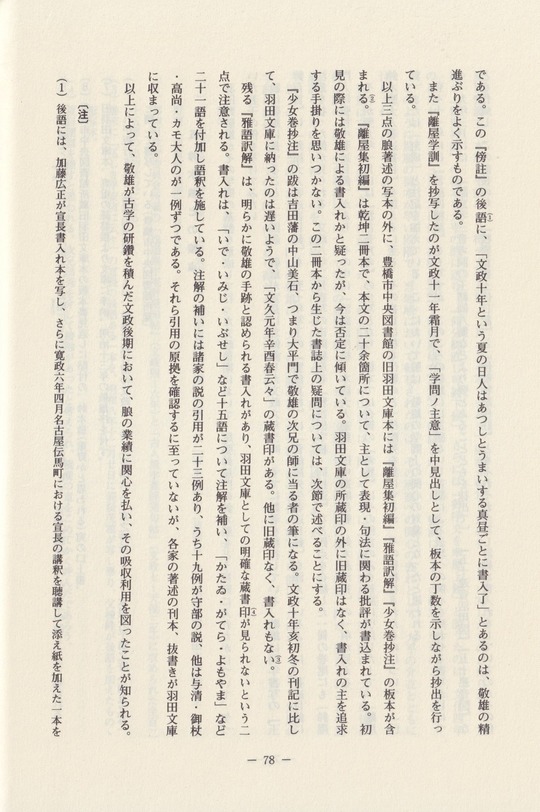 である。この『傍註』の後語に、「文政十年という夏の日人はあつしとうまいする真昼ごとに書入了」とあるのは、敬雄の精
(1)
進ぶりをよく示すものである。
また『離屋学訓』を抄写したのが文政十一年霜月で、「学問ノ主意」を中見出しとして、板本の丁数を示しながら抄出を行っ
ている。
以上三点の朖著述の写本の外に、豊橋市中央図書館の旧羽田文庫本には『離屋集初編』『雅語訳解』『少女巻抄注』の板本が含
まれる。『離屋集初編』は乾坤二冊本で、本文の二十余箇所について、主として表現・句法に関わる批評が書込まれている。初
(2)
見の際には敬雄による書入れかと疑ったが、今は否定に傾いている。羽田文庫の所蔵印の外に旧蔵印はなく、書入れの主を追求
する手掛りを思いつかない。この二冊本から生じた書誌上の疑問については、次節で述べることにする。
『少女巻抄注』の跋は吉田藩の中山美石、つまり大平門で敬雄の次兄の師に当る者の筆になる。文政十年亥初冬の刊記に比し
て、羽田文庫に納ったのは遅いようで、「文久元年辛酉春云々」の蔵書印がある。他に旧蔵印なく、書入れもない。
(3)
残る『雅語訳解』は、明らかに敬雄の手跡と認められる書入れがあり、羽田文庫としての明確な蔵書印が見られないという二
(4)
点で注意される。書入れは、「いで・いみじ・いぶせし」など十五語について注解を補い、「かたゐ・がてら・よもやま」など
二十一語を付加し語釈を施している。注解の補いには諸家の説の引用が二十三例あり、うち十九例が守部の説、他は与清・御杖
・高尚・カモ大人のが一例ずつである。それら引用の原拠を確認するに至っていないが、各家の著述の刊本、抜書きが羽田文庫
に収まっている。
以上によって、敬雄が古学の研鑽を積んだ文政後期において、朖の業績に関心を払い、その吸収利用を図ったことが知られる。
〔注〕
(1) 後語には、加藤広正が宣長書入れ本を写し、さらに寛政六年四月名古屋伝馬町における宣長の講釈を聴講して添え紙を加えた一本を
— 78 —